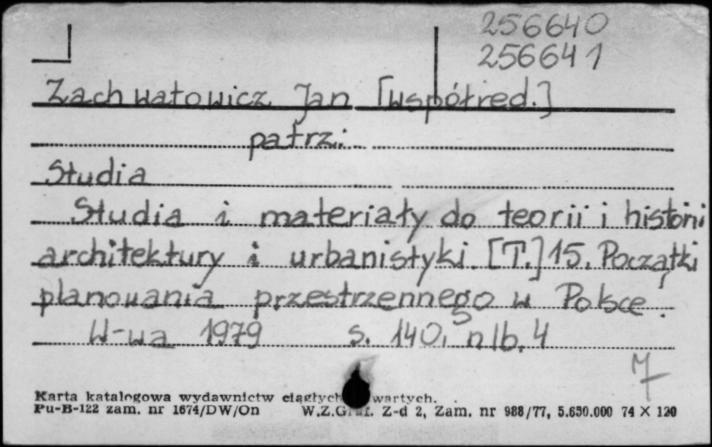 256640
256641
Zachwatowicz Jan [współred.]
patrz:
Studia
Studia i materiały do teorii i historii
architektury i urbanistyki [T.] 15. Początki
planowania przestrzennego w Polsce.
W-wa 1979 s. 140, nlb. 4
Karta katalogowa wydawnictw ciągłych wartych.
Pu-B-122 zam. nr 1674/DW/On W.Z.Graf. Z-d 2, Zam. nr 988/77, 5.650.000 74 X 120